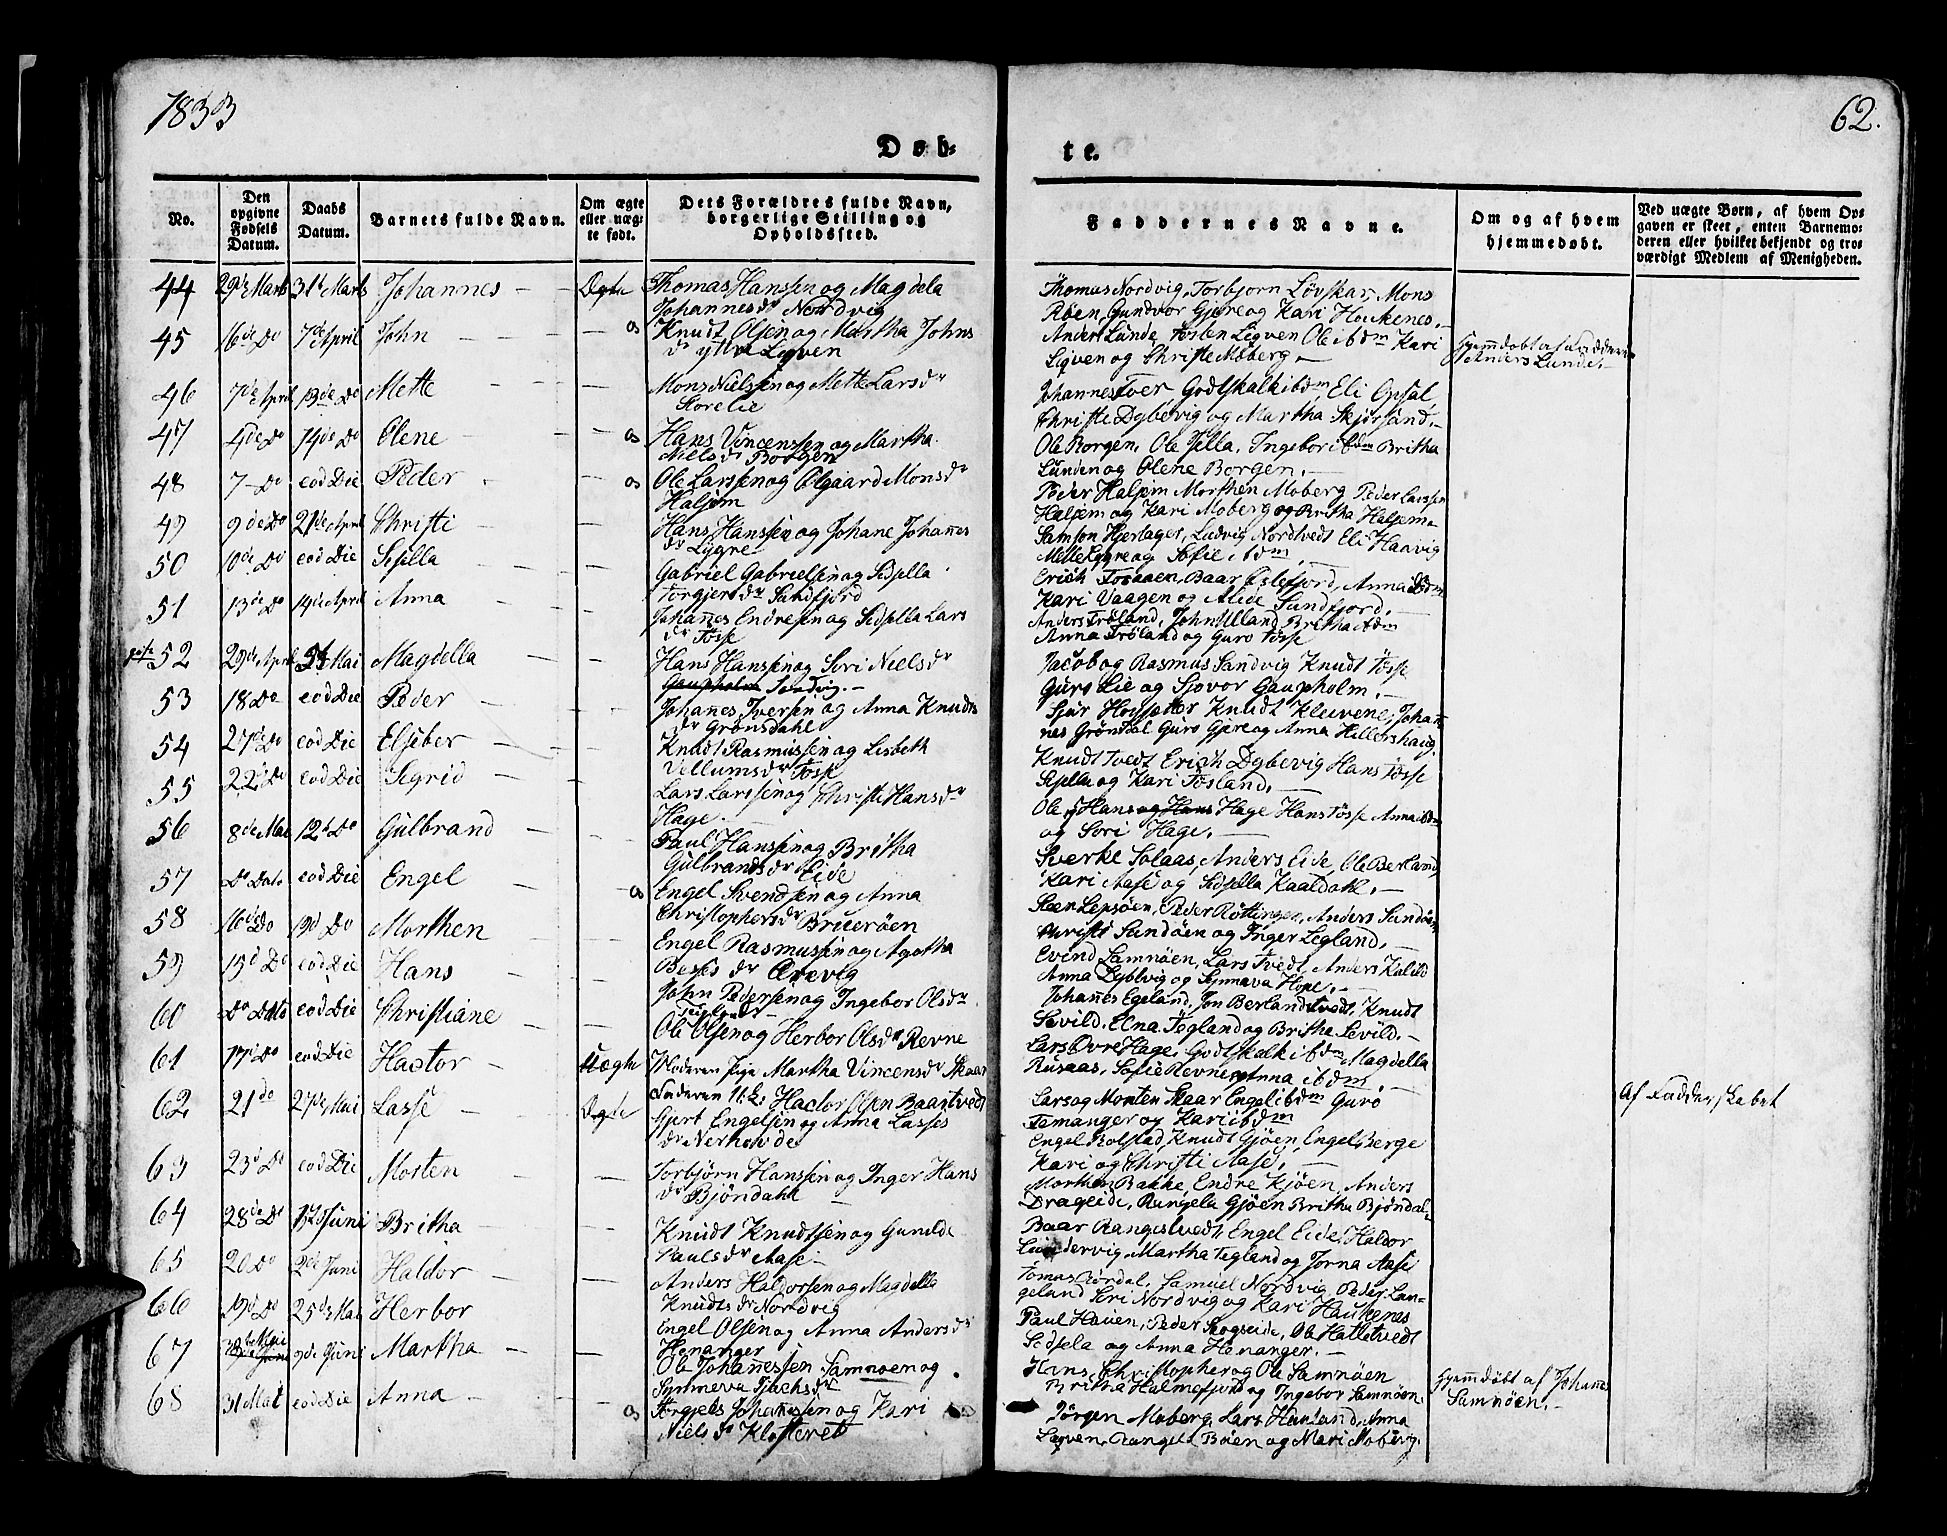 1833
62.
Døb=
te.
No.
Den opgivne Fødsels Datum.
Daabs Datum.
Barnets fulde Navn.
Om ægte eller uæg= te født.
Dets Forældres fulde Navn, borgerlige Stilling og Opholdssted.
Faddernes Navne.
Om og af hvem hjemmedøbt.
Ved uægte Børn, af hvem Op= gaven er skeet, enten Barnemo= deren eller hvilket bekjendt og tro= værdigt Medlem af Menigheden.
44 29de Marts 31te Marts Johannes - - Ægte Thomas Hanssen og Magdela
Johannesdr Nordvig
Thomas Nordvig, Torbjørn Løvskar, Mons
Røen, Gundvor Gjere og Kari Houkenes.
45 16de Do 7de April John - - Knudt Olsen og Martha Johns
dr yttre Ligven
Anders Lunde, Tosten Ligven Ole ibdm Kari
Ligven og Christi Moberg.
Hjemdøbt af Fadderen
Anders Lunde.
46 7de April 13de Do Mette - - Mons Nielsen og Mette Larsdr
Storelie
Johannes Tver, Godtskalk ibdm, Eli Opsal,
Christi Dybevig og Martha Skjørsand.
47 4de Do 14de Do Olene - Hans Vincenssen og Martha
Nielsdr Borgen
Ole Borgen, Ole Tilla, Ingebor ibdm Britha
Lunden og Olene Borgen.
48 7 - Do eod Die Peder - Ole Larssen og Olgaard Monsdr
Haljem
Peder Haljem Morthen Moberg Peder Larssen
Haljem og Kari Moberg og Britha Haljem
49 9de Do 21de April Christi - Hans Hanssen og Johane Johannes
dr Lygre
Samson Hjertager, Ludvig Nordtvedt Eli Haavig
Mette Lygre og Sofie ibdm
50 10de Do eod Die Sesella - Gabriel Gabrielsen og Sedsella
Torgjersdr Sundfjord
Erich Tosøen, Baar Eslefjord, Anna ibdm
Kari Vaagen og Alide Sundfjord.
51 13de Do 14de April Anna - Johannes Endresen og Sedsella Lars
dr Tøsse
Anders Frøland, John Ulland Britha ibdm
Anna Frøland og Guro Tøsse
52 29de April 5te Mai Magdella - Hans Hanssen og Sori Nielsdr
Gaupholm Sandvig.
Jacob og Rasmus Sandvig Knudt Tøsse
Guro Lie og Sjovor Gaupholm.
53 18 Do eod Die Peder - Johannes Iversen og Anna Knudts
dr Grønsdahl
Sjur Hougsetter Knudt Kleivene, Johan
nes Grøndal Guro Gjere og Anna Hillershaug.
54 27de Do eod Die Elseber - Knudt Rasmussen og Lisbeth
Villumsdr Tøsse
Knudt Tvedt Erich Dybevig Hans Tøsse
Sesella og Kari Tøsland.
55 22de Do eod Die Segrid - Lars Larssen og Christi Hansdr
Hage.
Ole og Hans og Hans Hage Hans Tøsse Anna ibdm
og Sori Hage.
56 8de Mai 12te Do Gulbrand - Paul Hanssen og Britha
Gulbrandsdr Eide
Sverke Solaas, Anders Eide, Ole Berland,
Kari Aase og Sedsella Kaaldahl.
57 Do Dato eod Die Engel - Engel Svendsen og Anna
Christophersdr Bruerøen
Steen Lepsøen, Peder Røttingen, Anders Sundøen
Christi Sundøen og Inger Legland.
58 16de Do 19d Do Morthen - Engel Rasmussen og Agatha
Besses dr Ørevig
Evind Samnøen, Lars Tvedt, Anders Kalvid
Anna Dybevig og Synnava Hope.
59 15d Do eod Die Hans - John Pedersen og Ingebor Olsdr
Tegland
Johannes Egeland, Jon Berlandstvedt, Knudt
Sevild, Elna Tegland og Britha Sevild.
60 Do Dato eod Die Christiane - Ole Olsen og Herbor Olsdr Revne
Lars Øvre Hage, Godtskalk ibdm Magdella
Rusaas, Sofie Revne og Anna ibdm.
61 17d Do eod Die Hactor - Uægte Moderen Pige Martha Vincensdr Skaar
Faderen U.K. Hactor Olsen Baartvedt
Lars og Morten Skaar Engel ibdm Guro
Femanger og Kari ibdm
Af Fadderskabet
62 21do 27de Mai Lasse - Ægte Gjert Engelsen og Anna Lasses
dr Nerhovde
Engel Bolstad, Knudt Gjøen, Engel Berge
Kari og Christi Aase.
63 23d Do eod Die Mosten - Torbjørn Hanssen og Inger Hans
dr Bjøndahl
Morthen Bakke, Endre Kjøen, Anders
Drageide, Rangela Gjøen Britha Bjøndal
64 28de Do 12d Juni Britha - Knudt Knudtsen og Gunilde
Paulsdr Aase
Baar Rangestvedt, Engel Eide, Haldor
Lundervig, Martha Tegland og Jorna Aase
65 20 Do 2de Juni Haldor - Anders Haldorsen og Magdella
Knudtsdr Nordvig
Tomas Nordal, Samuel Nordvig, Peder Lan-
geland Sori Nordvig og Kari Haukenes
66 19d Do 25de Mai Herbor Engel Olsen og Anna Andersdr
Henanger
Paul Hauen, Peder Skogseide, Ole Hatletvedt
Sedsela og Anna Henanger.
67 9de Juni Martha - Ole Johannessen Samnøen og
Synneva Tjachsdr
Hans, Christopher og Ole Samnøen
Britha Holmefjord og Ingebor Samnøen.
Hjemdøbt af Johans
Samnøen.
68 31 Mai eod Die Anna - Torgjels Johannessen og Kari
Nielsdr Klosteret
Jørgen Moberg, Lars Hauland, Anna
Legven, Rangele Bøen og Mari Moberg.